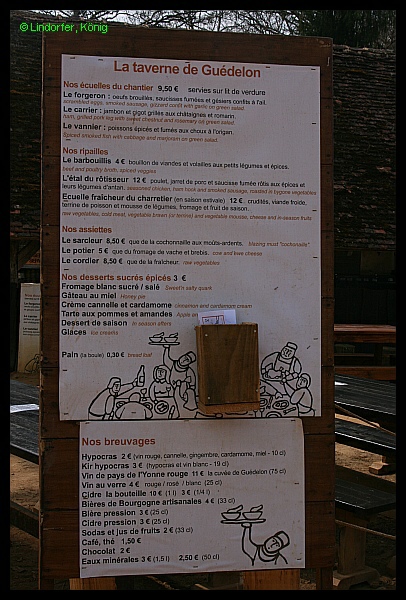 © Lindorfer, König
La taverne de Guédelon
Nos écuelles du chantier 9,50 € servies sur lit de verdure
Le forgeron : oeufs brouillés, saucisses fumées et gésiers confits à l'ail.
scrambled eggs, smoked sausage, gizzard confit with garlic on green salad
Le carrier : jambon et gigot grillés aux châtaignes et romarin.
ham, grilled pork leg with sweet chestnut and rosemary on green salad
Le vannier : poissons épicés et fumés aux choux à l'origan.
Spiced smoked fish with cabbage and marjoram on green salad
Nos ripailles
Le barbouillis 4 € bouillon de viandes et volailles aux petits légumes et épices.
beef and poultry broth, spiced veggies
L'étal du rôtisseur 12 € poulet, jarret de porc et saucisse fumée rôtis aux épices et
légumes d'antan. seasoned chicken, ham hock and smoked sausage, roasted in bygone vegetables
Ecuelle fraîcheur du charretier (en saison estivale) 12 € crudités, viande froide,
terrine de poisson et mousse de légumes, fromage et fruit de saison.
raw vegetables, cold meat, vegetable brawn (or terrine) and vegetable mousse, cheese and in-season fruits
Nos assiettes
Le sarcleur 8,50 € que de la cochonnaille aux moûts-ardents. blazing must "cochonnaille"
Le potier 5 € que du fromage de vache et brebis. cow and ewe cheese
Le cordier 8,50 € que de la fraîcheur. raw vegetables
Nos desserts sucrés épicés 3 €
Fromage blanc sucré / salé Sweet'n salty quark
Gâteau au miel Honey pie
Crème cannelle et cardamome cinnamon and cardamom cream
Tarte aux pommes et amandes Apple an
Dessert de saison In season afters
Glaces Ice creams
Pain (la boule) 0,30 € bread loaf
Nos breuvages
Hypocras 2 € (vin rouge, cannelle, gingembre, cardamome, miel - 10 cl)
Kir hypocras 3 € (hypocras et vin blanc - 19 cl)
Vin de pays de l'Yonne rouge 11 € la cuvée de Guédelon (75 cl)
Vin au verre 4 € rouge / rosé / blanc (25 cl)
Cidre la bouteille 10 € (1 l) 3 € (1/4 l)
Bières de Bourgogne artisanales 4 € (33 cl)
Bière pression 3 € (25 cl)
Cidre pression 3 € (25 cl)
Sodas et jus de fruits 2 € (33 cl)
Café, thé 1,50 €
Chocolat 2 €
Eaux minérales 3 € (1,5 l) 2,50 € (50 cl)